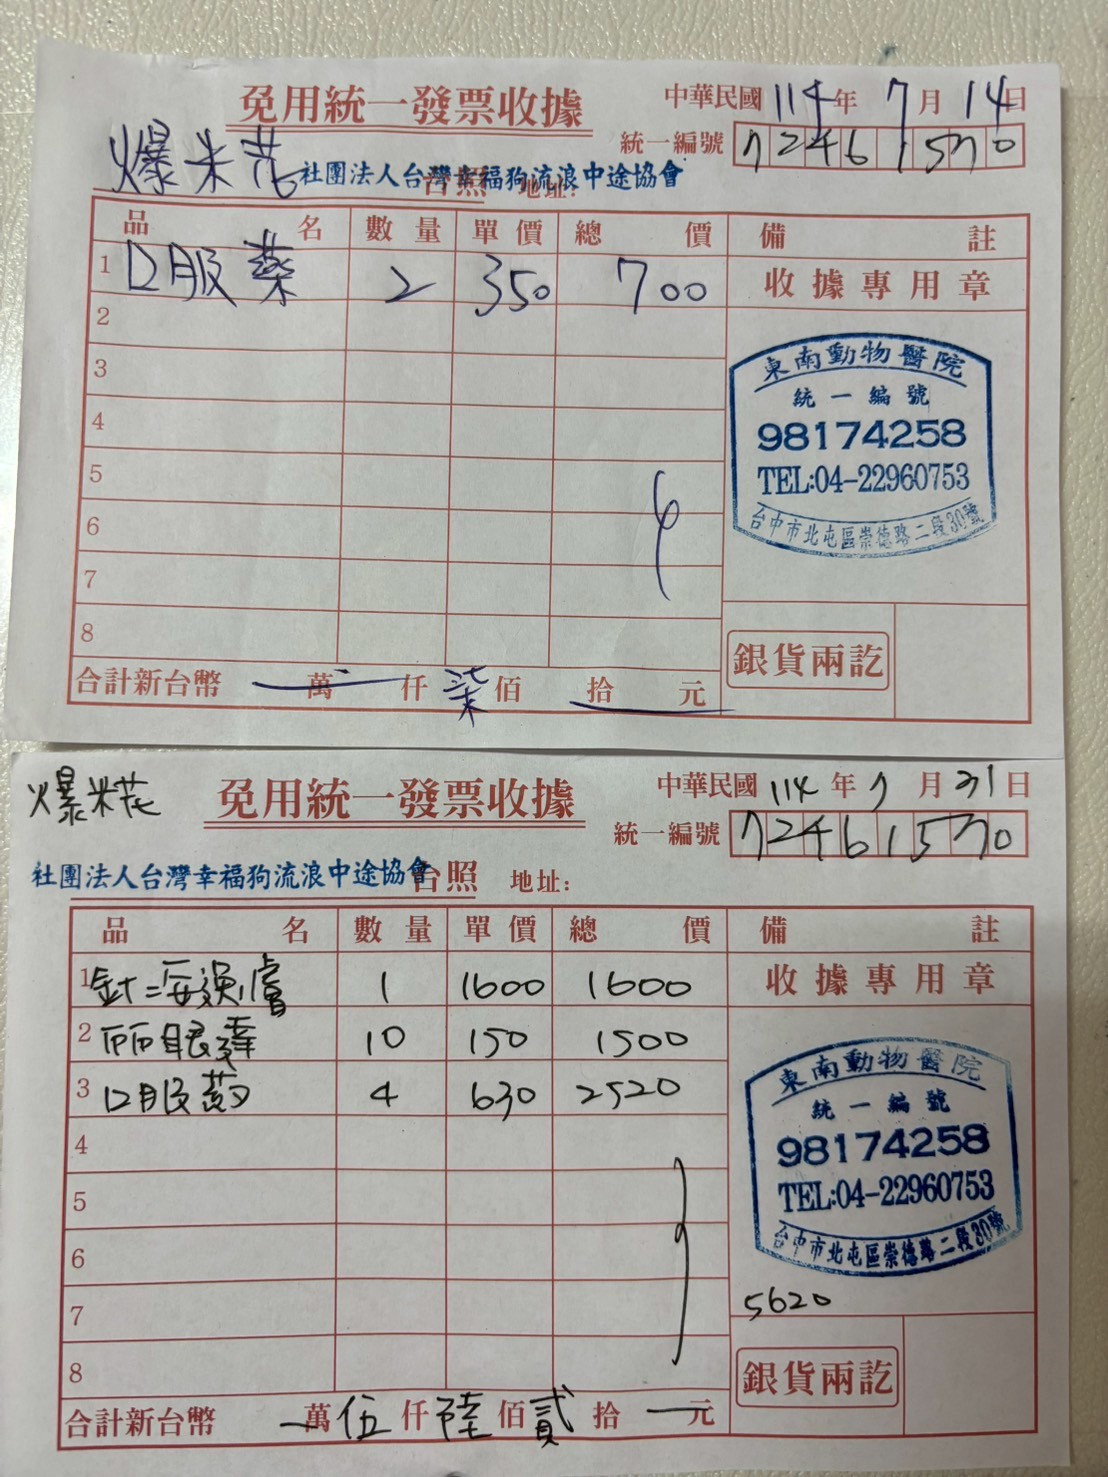 免用統一發票收據
中華民國 114 年 7 月 14 日
統一編號 72461570
爆米花 社團法人台灣幸福狗流浪中途協會 台照 地址:
品名 數量 單價 總價 備註
1 口服藥 2 350 700 收據專用章
2
3
4
5
6
7
8
東南動物醫院
統一編號
98174258
TEL:04-22960753
台中市北屯區崇德路二段30號
銀貨兩訖
合計新台幣 萬 仟 柒 佰 拾 元
爆米花 免用統一發票收據
中華民國 114 年 7 月 31 日
統一編號 72461570
社團法人台灣幸福狗流浪中途協會 台照 地址:
品名 數量 單價 總價 備註
1 針 1 1600 1600 收據專用章
2 10 150 1500
3 口服药 4 630 2520
4
5
6
7
8
東南動物醫院
統一編號
98174258
TEL:04-22960753
台中市北屯區崇德路二段30號
5620
銀貨兩訖
合計新台幣 萬 伍 仟 陸 佰 貳 拾 元